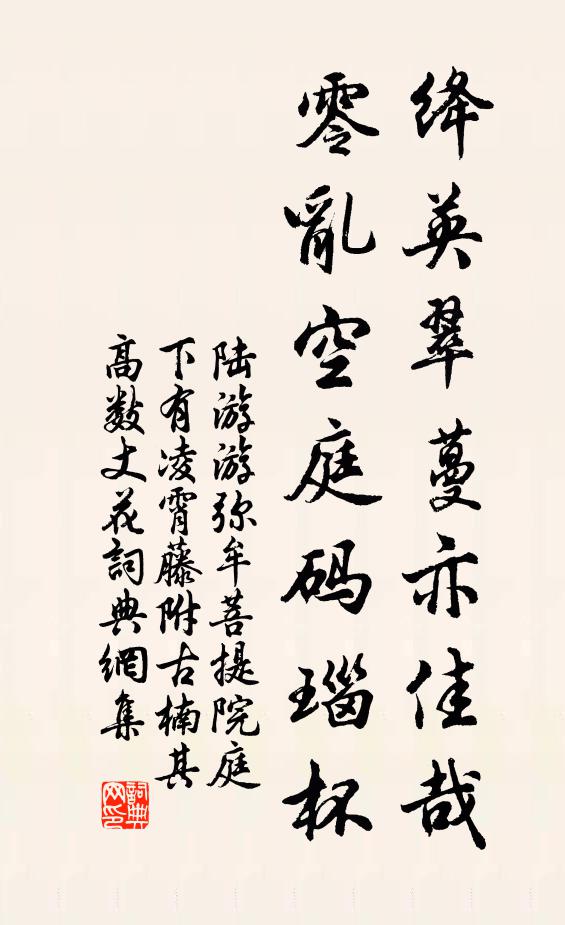 绛英翠蔓亦佳哉
零亂空庭码瑙杯
陆游游弥牟菩提院庭
下有凌霄藤附古楠其
高数丈花詞典網集
詞典
网印